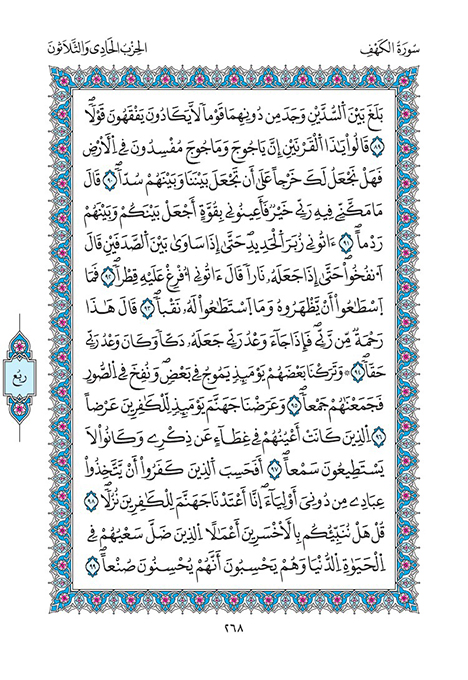 سُورَةُ الكَهْفِ
الحِزْبُ الحَادِى وَالثَّلَاثُونَ
بَلَغَ بَيْنَ اَ۬لسُّدَّيْنِ وَجَدَ مِن دُونِهِمَا قَوْماٗ لَّا يَكَادُونَ يَفْقَهُونَ قَوْلاٗۖ
٨٩ قَالُواْ يَٰذَا اَ۬لْقَرْنَيْنِ إِنَّ يَاجُوجَ وَمَاجُوجَ مُفْسِدُونَ فِے اِ۬لْأَرْضِ
فَهَلْ نَجْعَلُ لَكَ خَرْجاً عَلَىٰٓ أَن تَجْعَلَ بَيْنَنَا وَبَيْنَهُمْ سُدّاٗۖ ٩٠ قَالَ
مَا مَكَّنِّے فِيهِ رَبِّے خَيْرٞ فَأَعِينُونِے بِقُوَّةٍ اَجْعَلْ بَيْنَكُمْ وَبَيْنَهُمْ
رَدْماًۖ ٩١ ءَاتُونِے زُبَرَ اَ۬لْحَدِيدِۖ حَتَّىٰٓ إِذَا سَاوَىٰ بَيْنَ اَ۬لصَّدَفَيْنِ قَالَ
اَ۟نفُخُواْۖ حَتَّىٰٓ إِذَا جَعَلَهُۥ نَاراٗ قَالَ ءَاتُونِےٓ أُفْرِغْ عَلَيْهِ قِطْراٗۖ ٩٢ فَمَا
اَ۪سْطَٰعُوٓاْ أَنْ يَّظْهَرُوهُ وَمَا اَ۪سْتَطَٰعُواْ لَهُۥ نَقْباٗۖ ٩٣ قَالَ هَٰذَا
رَحْمَةٞ مِّن رَّبِّےۖ فَإِذَا جَآءَ وَعْدُ رَبِّے جَعَلَهُۥ دَكّاٗۖ وَكَانَ وَعْدُ رَبِّے
حَقّاٗۖ ٩٤ ۞ وَتَرَكْنَا بَعْضَهُمْ يَوْمَئِذٖ يَمُوجُ فِے بَعْضٖۖ وَنُفِخَ فِے اِ۬لصُّورِ
فَجَمَعْنَٰهُمْ جَمْعاٗۖ ٩٥ وَعَرَضْنَا جَهَنَّمَ يَوْمَئِذٖ لِّلْكَٰفِرِينَ عَرْضاً
٩٦ اِ۬لذِينَ كَانَتَ اَعْيُنُهُمْ فِے غِطَآءٍ عَن ذِكْرِے وَكَانُواْ لَا
يَسْتَطِيعُونَ سَمْعاًۖ ٩٧ اَفَحَسِبَ اَ۬لذِينَ كَفَرُوٓاْ أَنْ يَّتَّخِذُواْ
عِبَادِے مِن دُونِيَ أَوْلِيَآءَۖ اِنَّآ أَعْتَدْنَا جَهَنَّمَ لِلْكَٰفِرِينَ نُزُلاٗۖ ٩٨
قُلْ هَلْ نُنَبِّئُكُم بِالْأَخْسَرِينَ أَعْمَٰلاً اِ۬لذِينَ ضَلَّ سَعْيُهُمْ فِے
اِ۬لْحَيَوٰةِ اِ۬لدُّنْيَا وَهُمْ يَحْسِبُونَ أَنَّهُمْ يُحْسِنُونَ صُنْعاًۖ ٩٩
ربع
٢٦٨